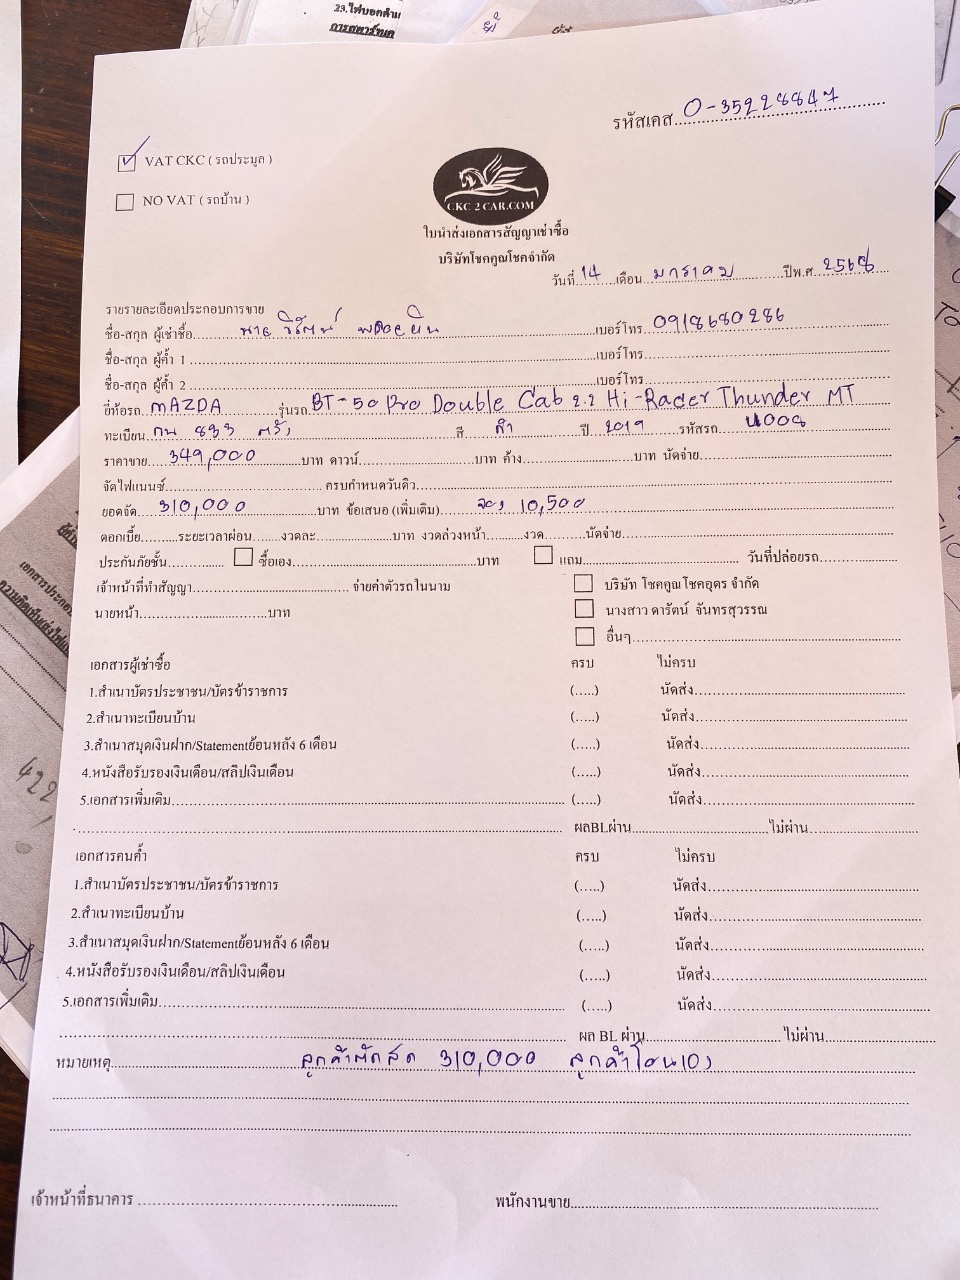 23.ไฟบอกด้าน
การสตาร์ทเค
รหัสเคส 0-35228847
☑ VAT CKC ( รถประมูล )
☐ NO VAT ( รถบ้าน )
CKC 2 CAR.COM
ใบนำส่งเอกสารสัญญาเช่าซื้อ
บริษัทโชคคูณโชคจำกัด
วันที่ 14 เดือน มกราคม ปีพ.ศ. 2568
รายรายละเอียดประกอบการขาย
ชื่อ-สกุล ผู้เช่าซื้อ นาย เบอร์โทร 0918680286
ชื่อ-สกุล ผู้ค้ำ 1 เบอร์โทร
ชื่อ-สกุล ผู้ค้ำ 2 เบอร์โทร
ยี่ห้อรถ MAZDA รุ่นรถ BT-50 Pro Double Cab 2.2 Hi-Racer Thunder MT
ทะเบียน กน 833 ตรัง สี ดำ ปี 2019 รหัสรถ 4008
ราคาขาย 349,000 บาท ดาวน์ บาท ค้าง บาท นัดจ่าย
จัดไฟแนนซ์ ครบกำหนดวันดิว
ยอดจัด 310,000 บาท ข้อเสนอ (เพิ่มเติม) จอง 10,500
ดอกเบี้ย ระยะเวลาผ่อน งวดละ บาท งวดล่วงหน้า งวด นัดจ่าย
ประกันภัยชั้น ☐ ซื้อเอง บาท ☐ แถม วันที่ปล่อยรถ
เจ้าหน้าที่ทำสัญญา จ่ายค่าตัวรถในนาม ☐ บริษัท โชคคูณโชคอุดร จำกัด
นายหน้า บาท ☐ นางสาว ดารัตน์ จันทรสุวรรณ
☐ อื่นๆ
เอกสารผู้เช่าซื้อ ครบ ไม่ครบ
1.สำเนาบัตรประชาชน/บัตรข้าราชการ (.....) นัดส่ง
2.สำเนาทะเบียนบ้าน (.....) นัดส่ง
3.สำเนาสมุดเงินฝาก/Statementย้อนหลัง 6 เดือน (.....) นัดส่ง
4.หนังสือรับรองเงินเดือน/สลิปเงินเดือน (.....) นัดส่ง
5.เอกสารเพิ่มเติม (.....) นัดส่ง
ผลBLผ่าน ไม่ผ่าน
เอกสารคนค้ำ ครบ ไม่ครบ
1.สำเนาบัตรประชาชน/บัตรข้าราชการ (.....) นัดส่ง
2.สำเนาทะเบียนบ้าน (.....) นัดส่ง
3.สำเนาสมุดเงินฝาก/Statementย้อนหลัง 6 เดือน (.....) นัดส่ง
4.หนังสือรับรองเงินเดือน/สลิปเงินเดือน (.....) นัดส่ง
5.เอกสารเพิ่มเติม (.....) นัดส่ง
ผล BL ผ่าน ไม่ผ่าน
หมายเหตุ ลูกค้าตัดสด 310,000 ลูกค้าโอนเอง
เจ้าหน้าที่ธนาคาร พนักงานขาย
422